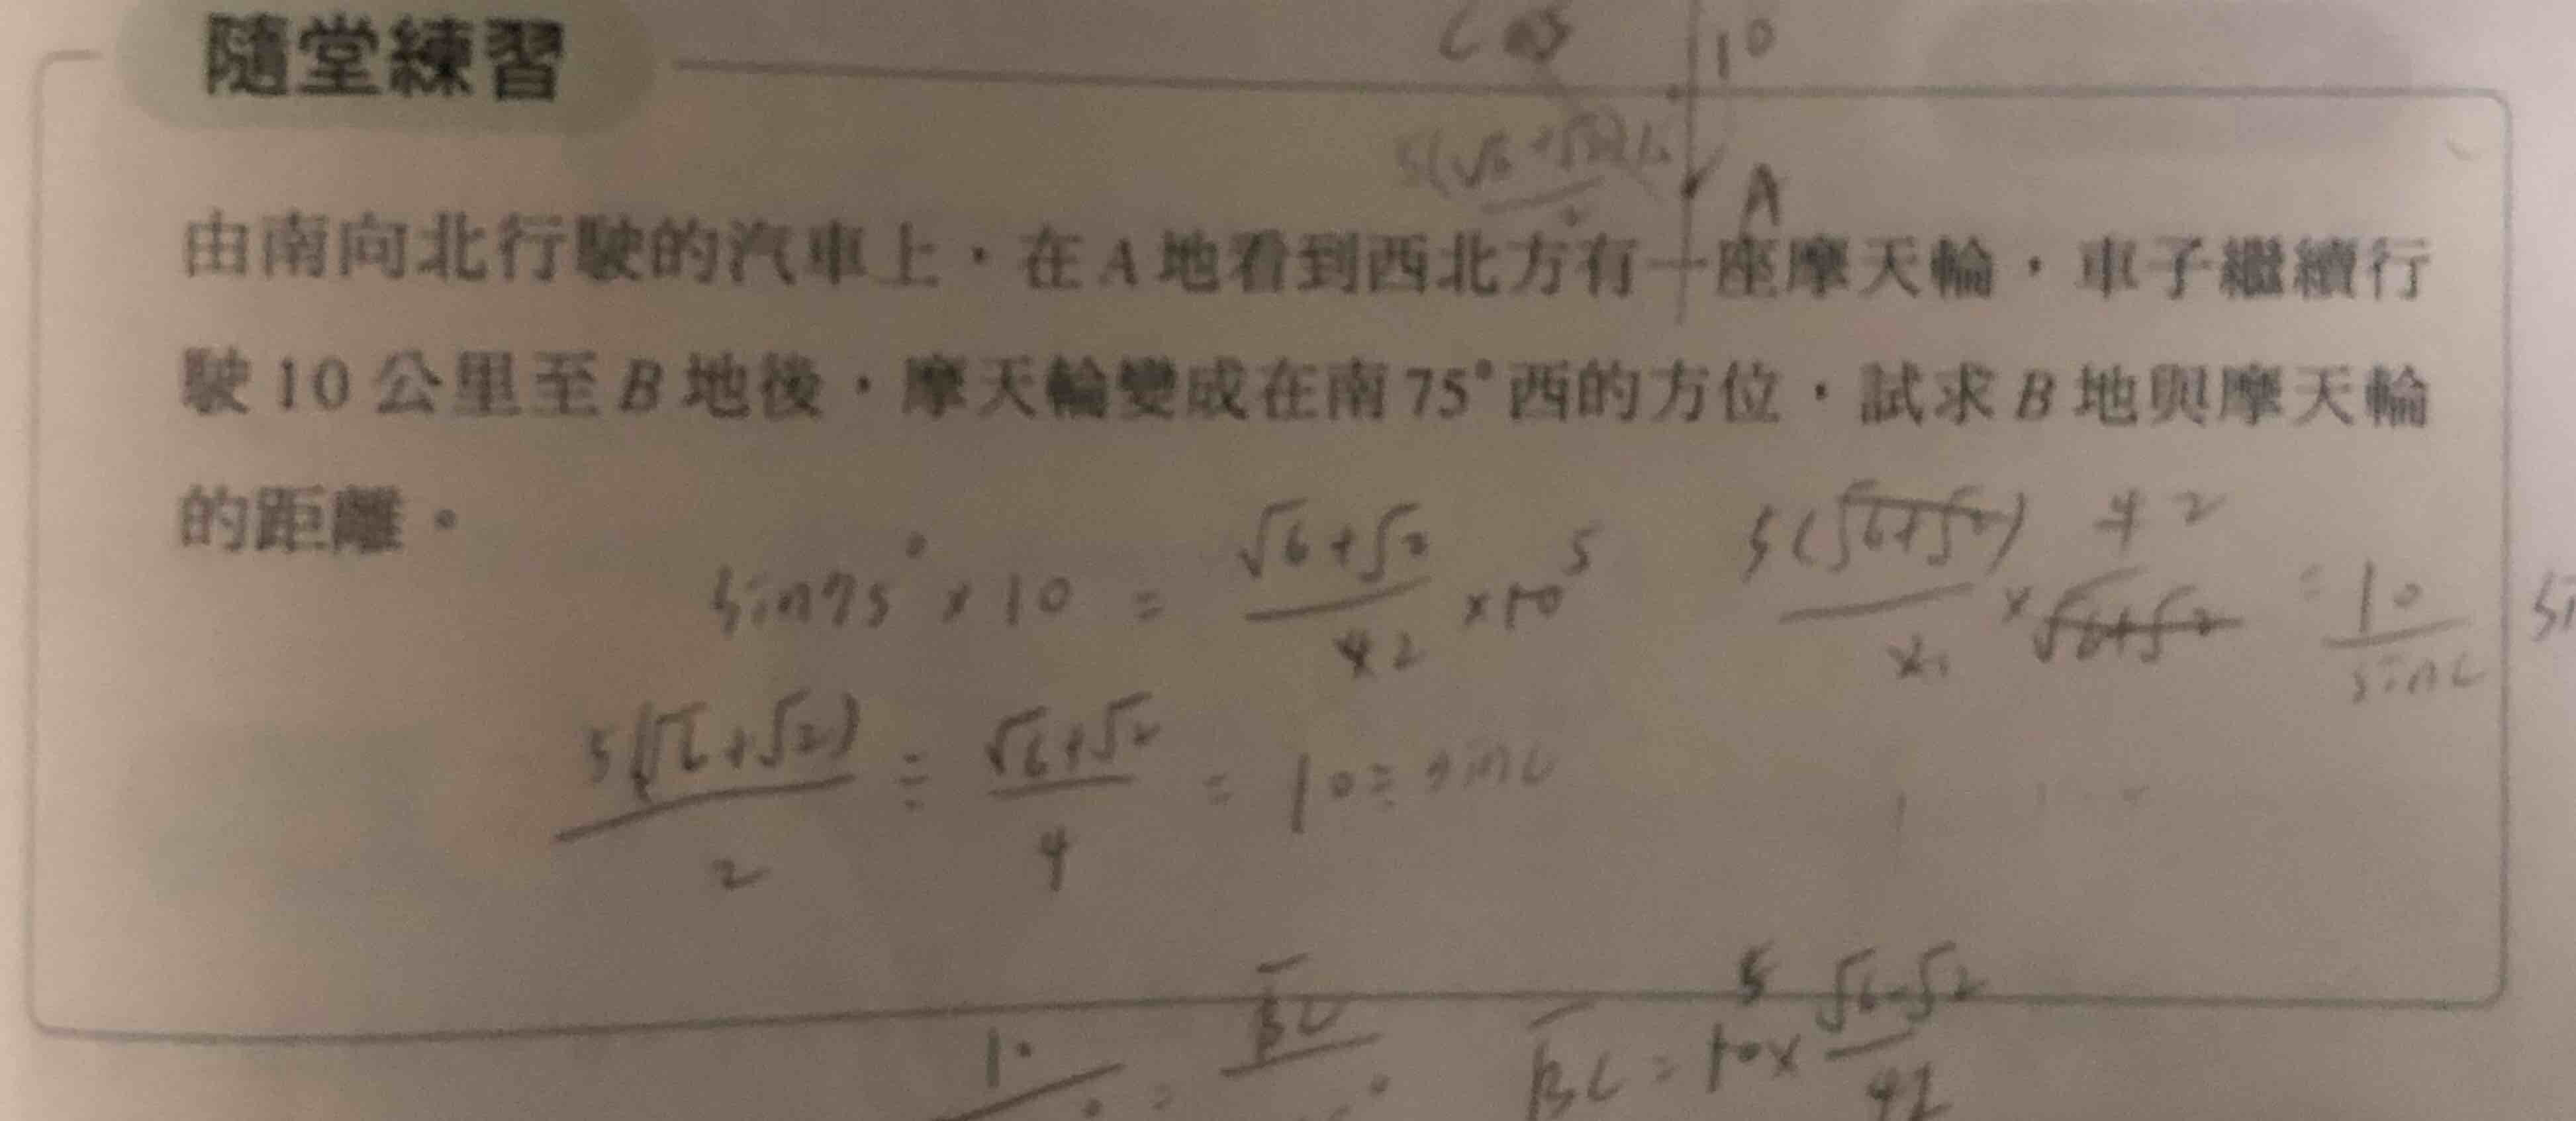 隨堂練習
cos
10
A
由南向北行駛的汽車上，在A地看到西北方有一座摩天輪，車子繼續行
駛10公里至B地後，摩天輪變成在南75°西的方位，試求B地與摩天輪
的距離。
sin75° × 10 = √6+√2 / 4 2 × 10 5
5(√6+√2) / 2 × 4 2 / √6+√2 = 10 / sinC
5(√6+√2) / 2 ÷ √6+√2 / 4 = 10 ÷ sinC
10 = BC
BC = 10 5 × √6-√2 / 4 2